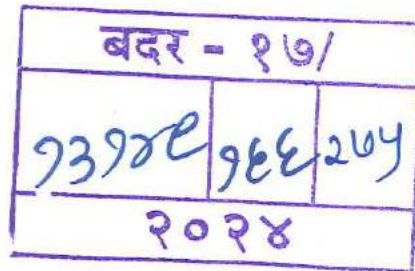 बदर - १७/
१३१४९ १६६ २७५
२०२४